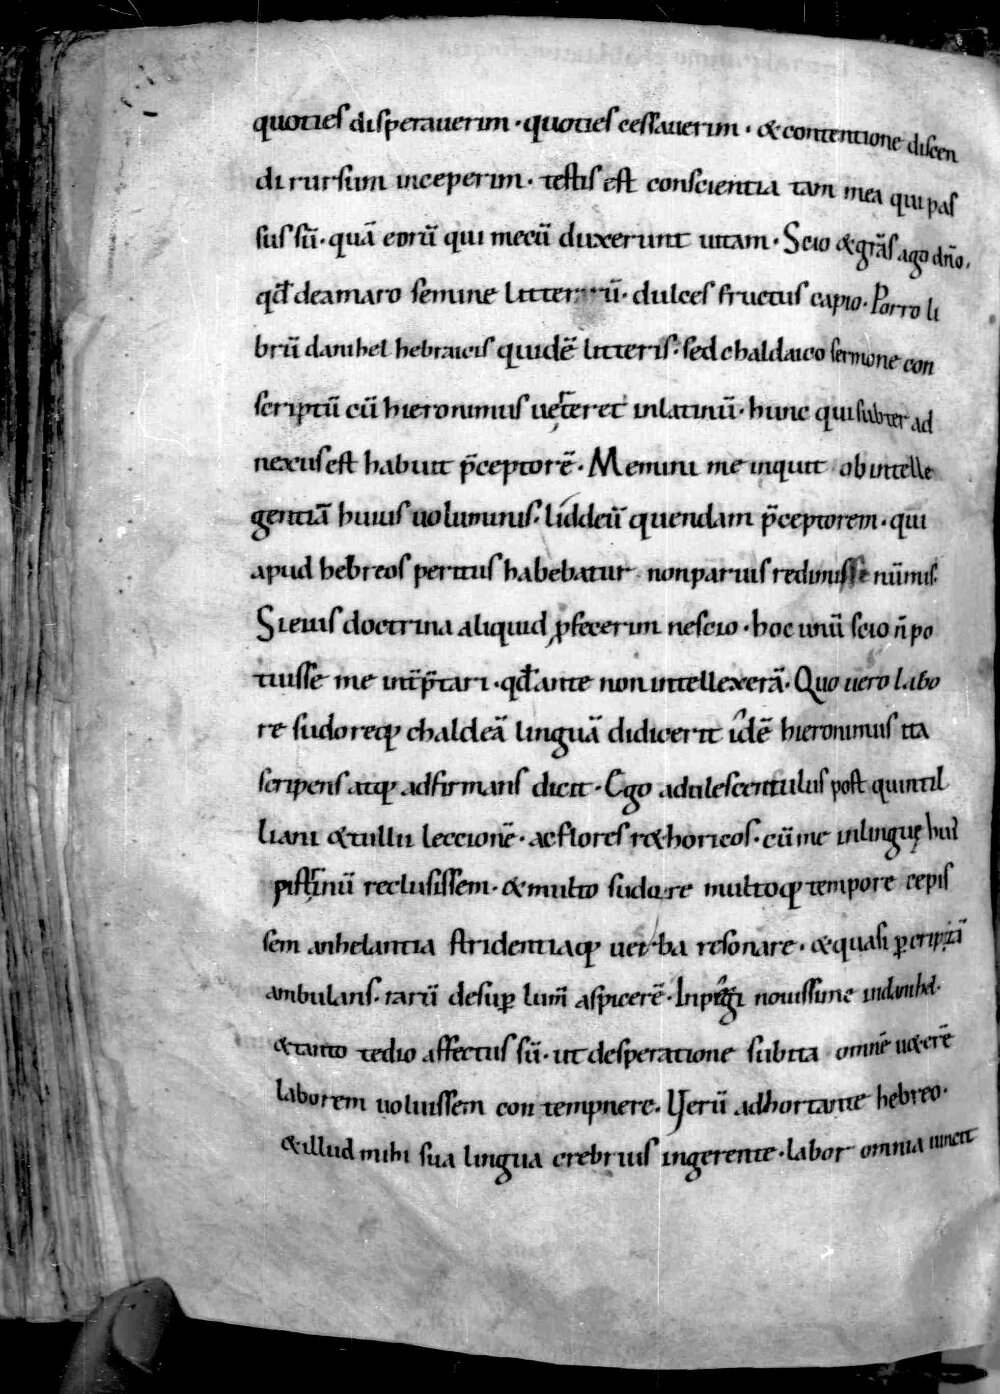 quoties disperauerim · quoties cessauerim · & contentione discen
di rursum inceperim · testis est conscientia tam mea qui pas
sus sū · quā eorū qui mecū duxerunt uitam · Scio & grās ago dño ,
qđ deamaro semine litterarū · dulces fructus capio · Porro li
brū danihel hebraicis quidē litteris · sed chaldaico sermone con
scriptū cū hieronimus uerteret inlatinū · hunc qui subter ad
nexus est habuit p̄ceptorē · Memini me inquit ob intelle
gentiā huius uoluminis · liddeū quendam p̄ceptorem · qui
apud hebreos peritus habebatur non paruis redimisse nūmis ·
Si eius doctrina aliquid ꝓfecerim nescio · hoc unū scio ñ po
tuisse me int̄p̄tari · qđ ante non intellexerā · Quo uero labo
re sudoreq; chaldeā linguā didicerit idē hieronimus ita
scripens atq; adfirmans dicit · Ego adulescentulus post quintil
liani & tullii leccionē · ac flores r&horicos · cū me inlinguę hui
pistrinū reclusissem · & multo sudore multoq; tempore cepis
sem anhelantia stridentiaq; uerba resonare · & quasi ꝑ criptā
ambulans · rarū desuꝑ lum̄ aspicerē · Inpigi nouissime indanihel ·
& tanto tedio affectus sū · ut desperatione subita omnē uererē
laborem uoluissem contempnere · Uerū adhortante hebreo ·
& illud mihi sua lingua crebrius ingerente · labor omnia uincit